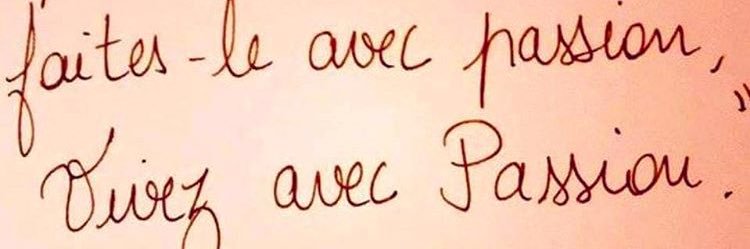 faites-le avec passion,
Vivez avec Passion. »